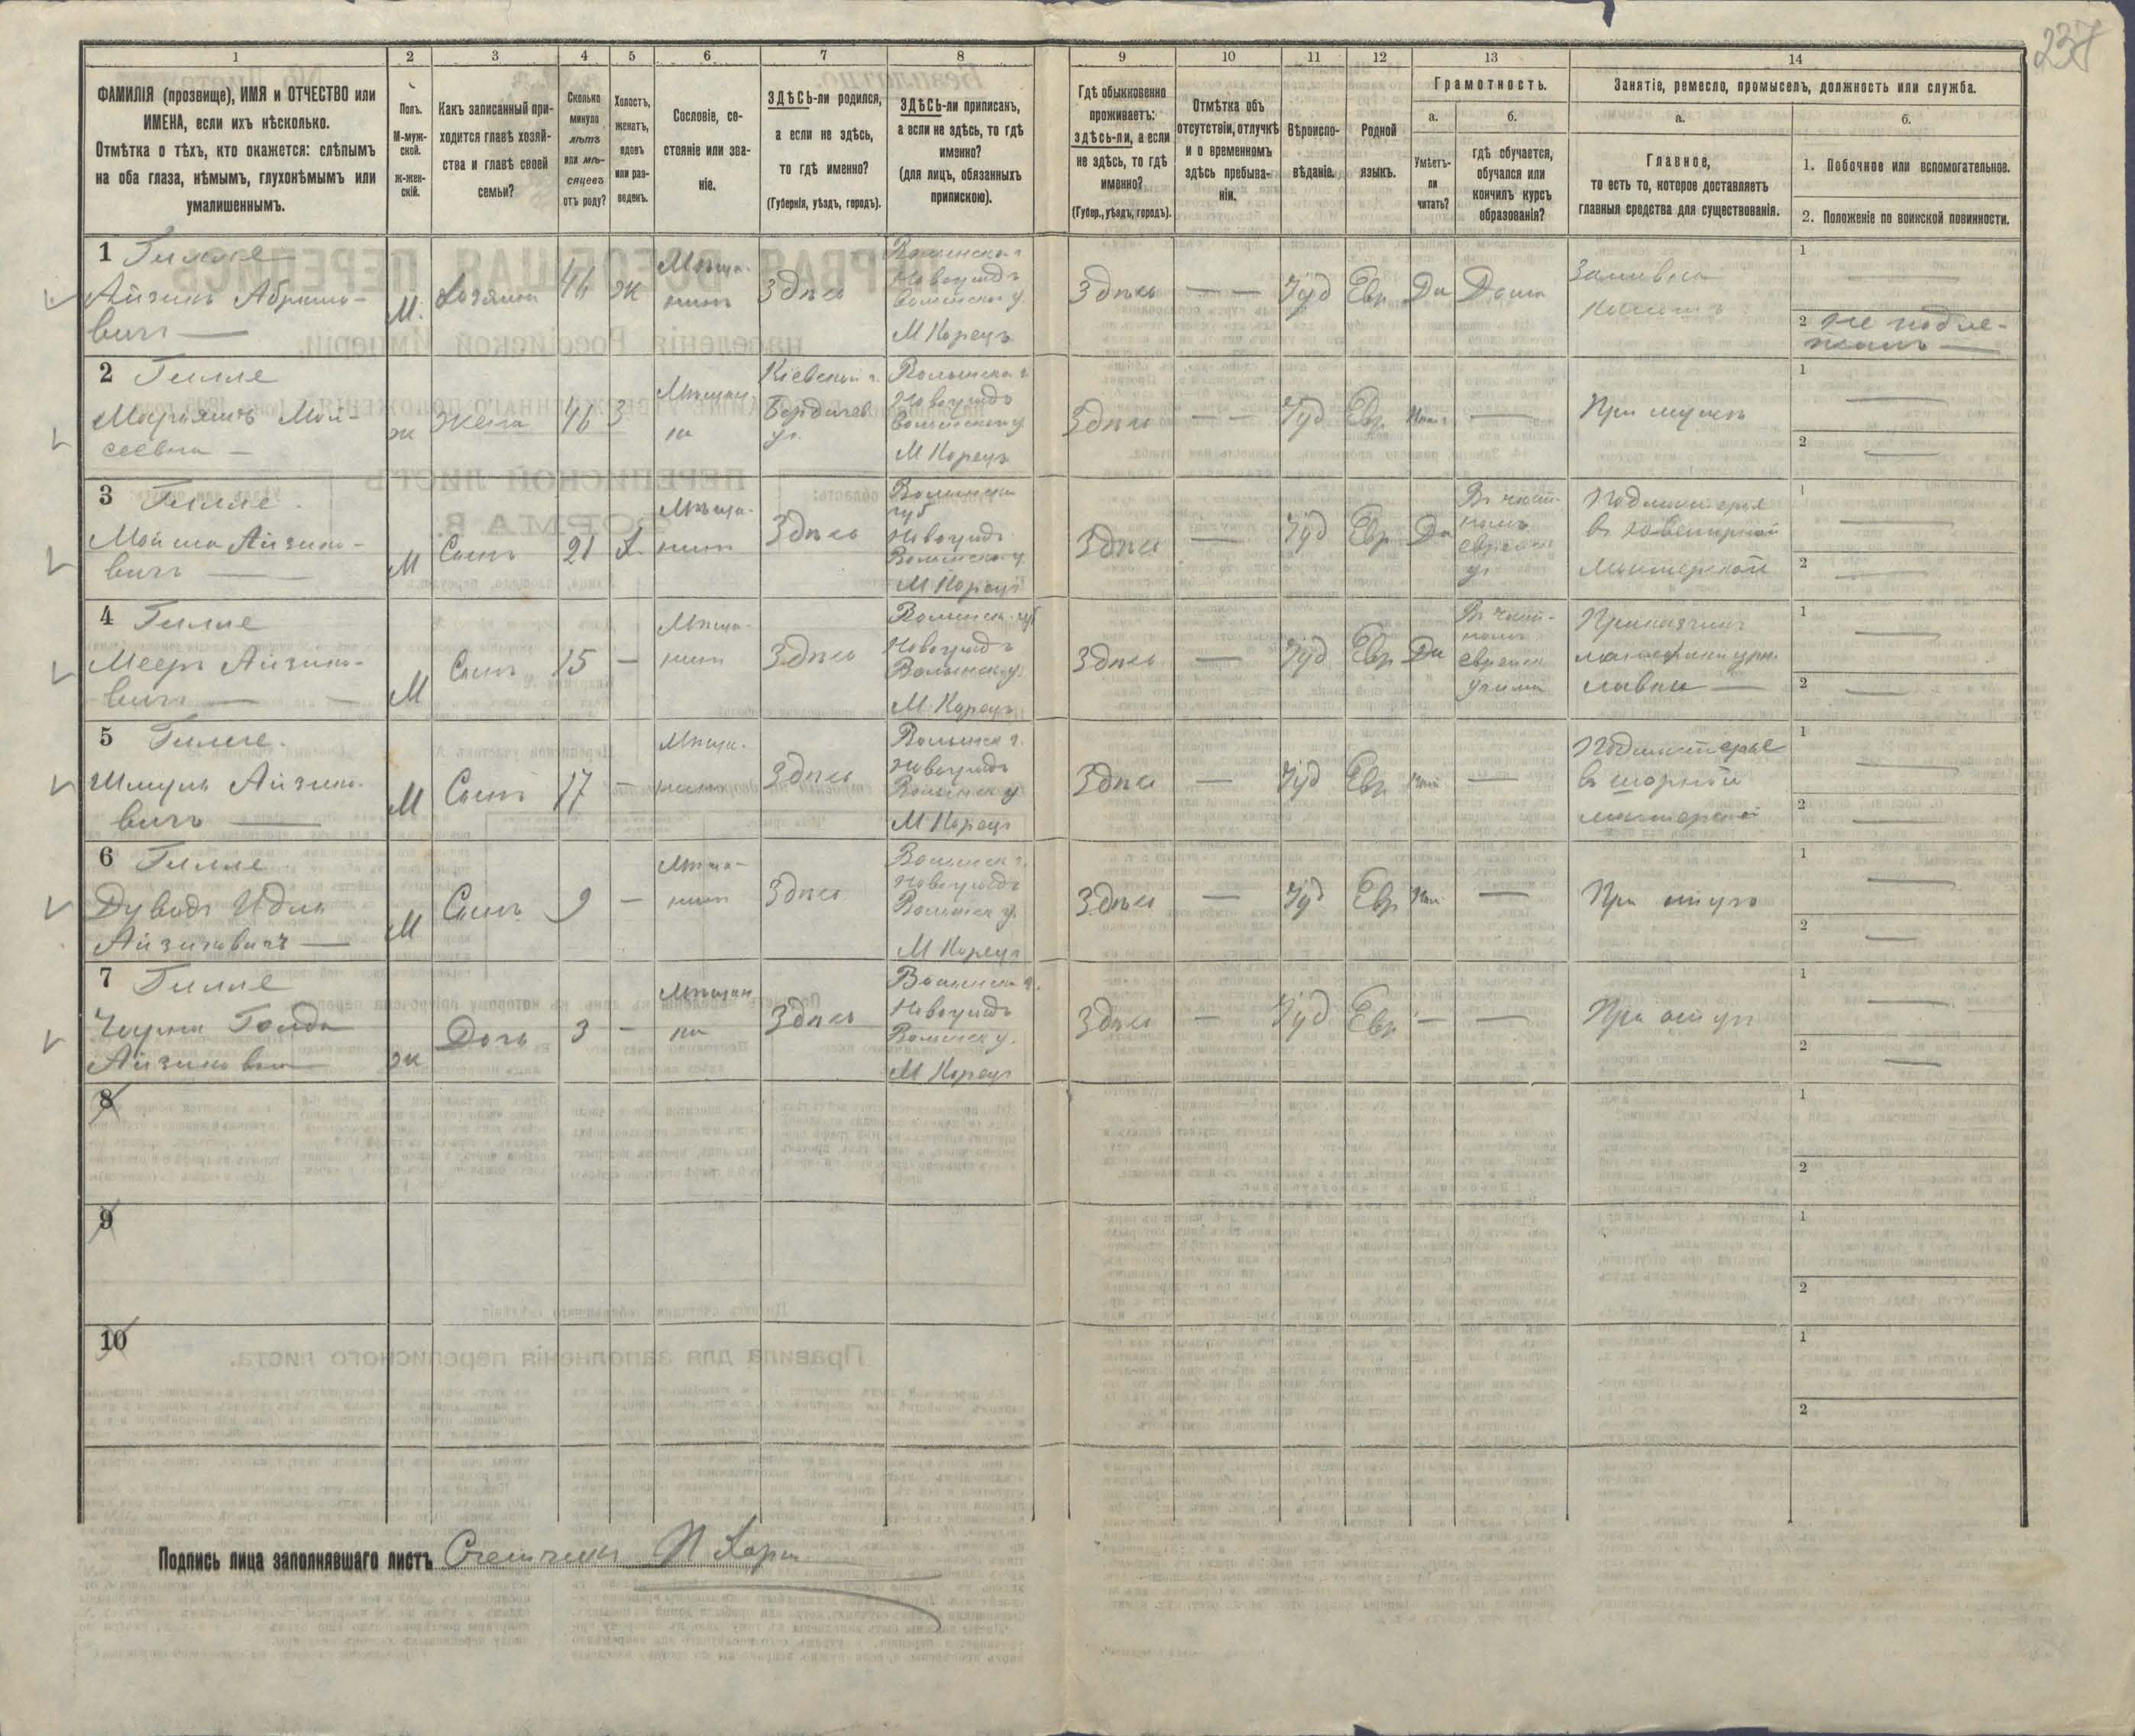 237
1
2
3
4
5
6
7
8
9
10
11
12
13
14
ФАМИЛІЯ (прозвище), ИМЯ и ОТЧЕСТВО или
ИМЕНА, если ихъ нѣсколько.
Отмѣтка о тѣхъ, кто окажется: слѣпымъ
на оба глаза, нѣмымъ, глухонѣмымъ или
умалишеннымъ.
Полъ.
М-муж-
ской.
Ж-жен-
скій.
Какъ записанный при-
ходится главѣ хозяй-
ства и главѣ своей
семьи?
Сколько
минуло
лѣтъ
или мѣ-
сяцевъ
отъ роду?
Холостъ,
женатъ,
вдовъ
или раз-
веденъ.
Сословіе, со-
стояніе или зва-
ніе.
ЗДѢСЬ-ли родился,
а если не здѣсь,
то гдѣ именно?
(Губернія, уѣздъ, городъ).
ЗДѢСЬ-ли приписанъ,
а если не здѣсь, то гдѣ
именно?
(для лицъ, обязанныхъ
припискою).
Гдѣ обыкновенно
проживаетъ:
здѣсь-ли, а если
не здѣсь, то гдѣ
именно?
(Губер., уѣздъ, городъ).
Отмѣтка объ
отсутствіи, отлучкѣ
и о временномъ
здѣсь пребыва-
ніи.
Вѣроиспо-
вѣданіе.
Родной
языкъ.
Грамотность.
а.
Умѣетъ-
ли
читать?
б.
гдѣ обучается,
обучался или
кончилъ курсъ
образованія?
Занятіе, ремесло, промыселъ, должность или служба.
а.
Главное,
то есть то, которое доставляетъ
главныя средства для существованія.
б.
1. Побочное или вспомогательное.
2. Положеніе по воинской повинности.
1 Гилле
Айзикъ Абрамо-
вичъ —
М.
Хозяинъ
46
ж
Мѣща-
нинъ
Здѣсь
Волынской г
Новоградъ
Волынскаго у.
М Корецъ
Здѣсь
— —
Іуд
Евр
Да
Дома
1 —
2 не подле-
житъ —
2 Гилле
Моисеевна —
ж
жена
46
З
Мѣщан
ка
Кіевской г.
Бердичев
у.
Волынской г
Новоградъ
Волынскаго у
М Корецъ
Здѣсь
— —
Іуд
Евр
—
При мужѣ
1 —
2 —
3 Гилле.
Айзико-
вичъ —
М
Сынъ
21
Х.
Мѣща-
нинъ
Здѣсь
Волынской
губ
Новоградъ
Волынскаго у.
М Корецъ
Здѣсь
—
Іуд
Евр
Да
Въ част-
номъ
еврейск
уч
Подмастерье
въ ювелирной
мастерской
1 —
2 —
4 Гилле
Мееръ Айзико-
вичъ — —
М
Сынъ
15
—
Мѣща-
нинъ
Здѣсь
Волынск. губ
Новоградъ
Волынск. у.
М. Корецъ
Здѣсь
—
Іуд
Евр
Да
Въ част-
номъ
еврейск
училищ
Приказчикъ
лавки —
1 —
2 —
5 Гилле.
Шмуль Айзико-
вичъ —
М
Сынъ
17
—
Мѣща-
нинъ
Здѣсь
Волынск г.
Новоградъ
Волынск у
М Корецъ
Здѣсь
—
Іуд
Евр
—
Подмастерье
въ шорной
мастерской
1 —
2 —
6 Гилле
Айзиковичъ —
М
Сынъ
9
—
Мѣща-
нинъ
Здѣсь
Волынск г.
Новоградъ
Волынск у.
М Корецъ
Здѣсь
—
Іуд
Евр
—
При отцѣ
1 —
2 —
7 Гилле
Голда
Айзиковна
ж
Дочь
3
—
Мѣщан
ка
Здѣсь
Волынск г.
Новоградъ
Волынск у.
М Корецъ
Здѣсь
—
Іуд
Евр
—
—
При отцѣ
1 —
2 —
8
1
2
9
1
2
10
1
2
Подпись лица заполнявшаго листъ Счетчикъ